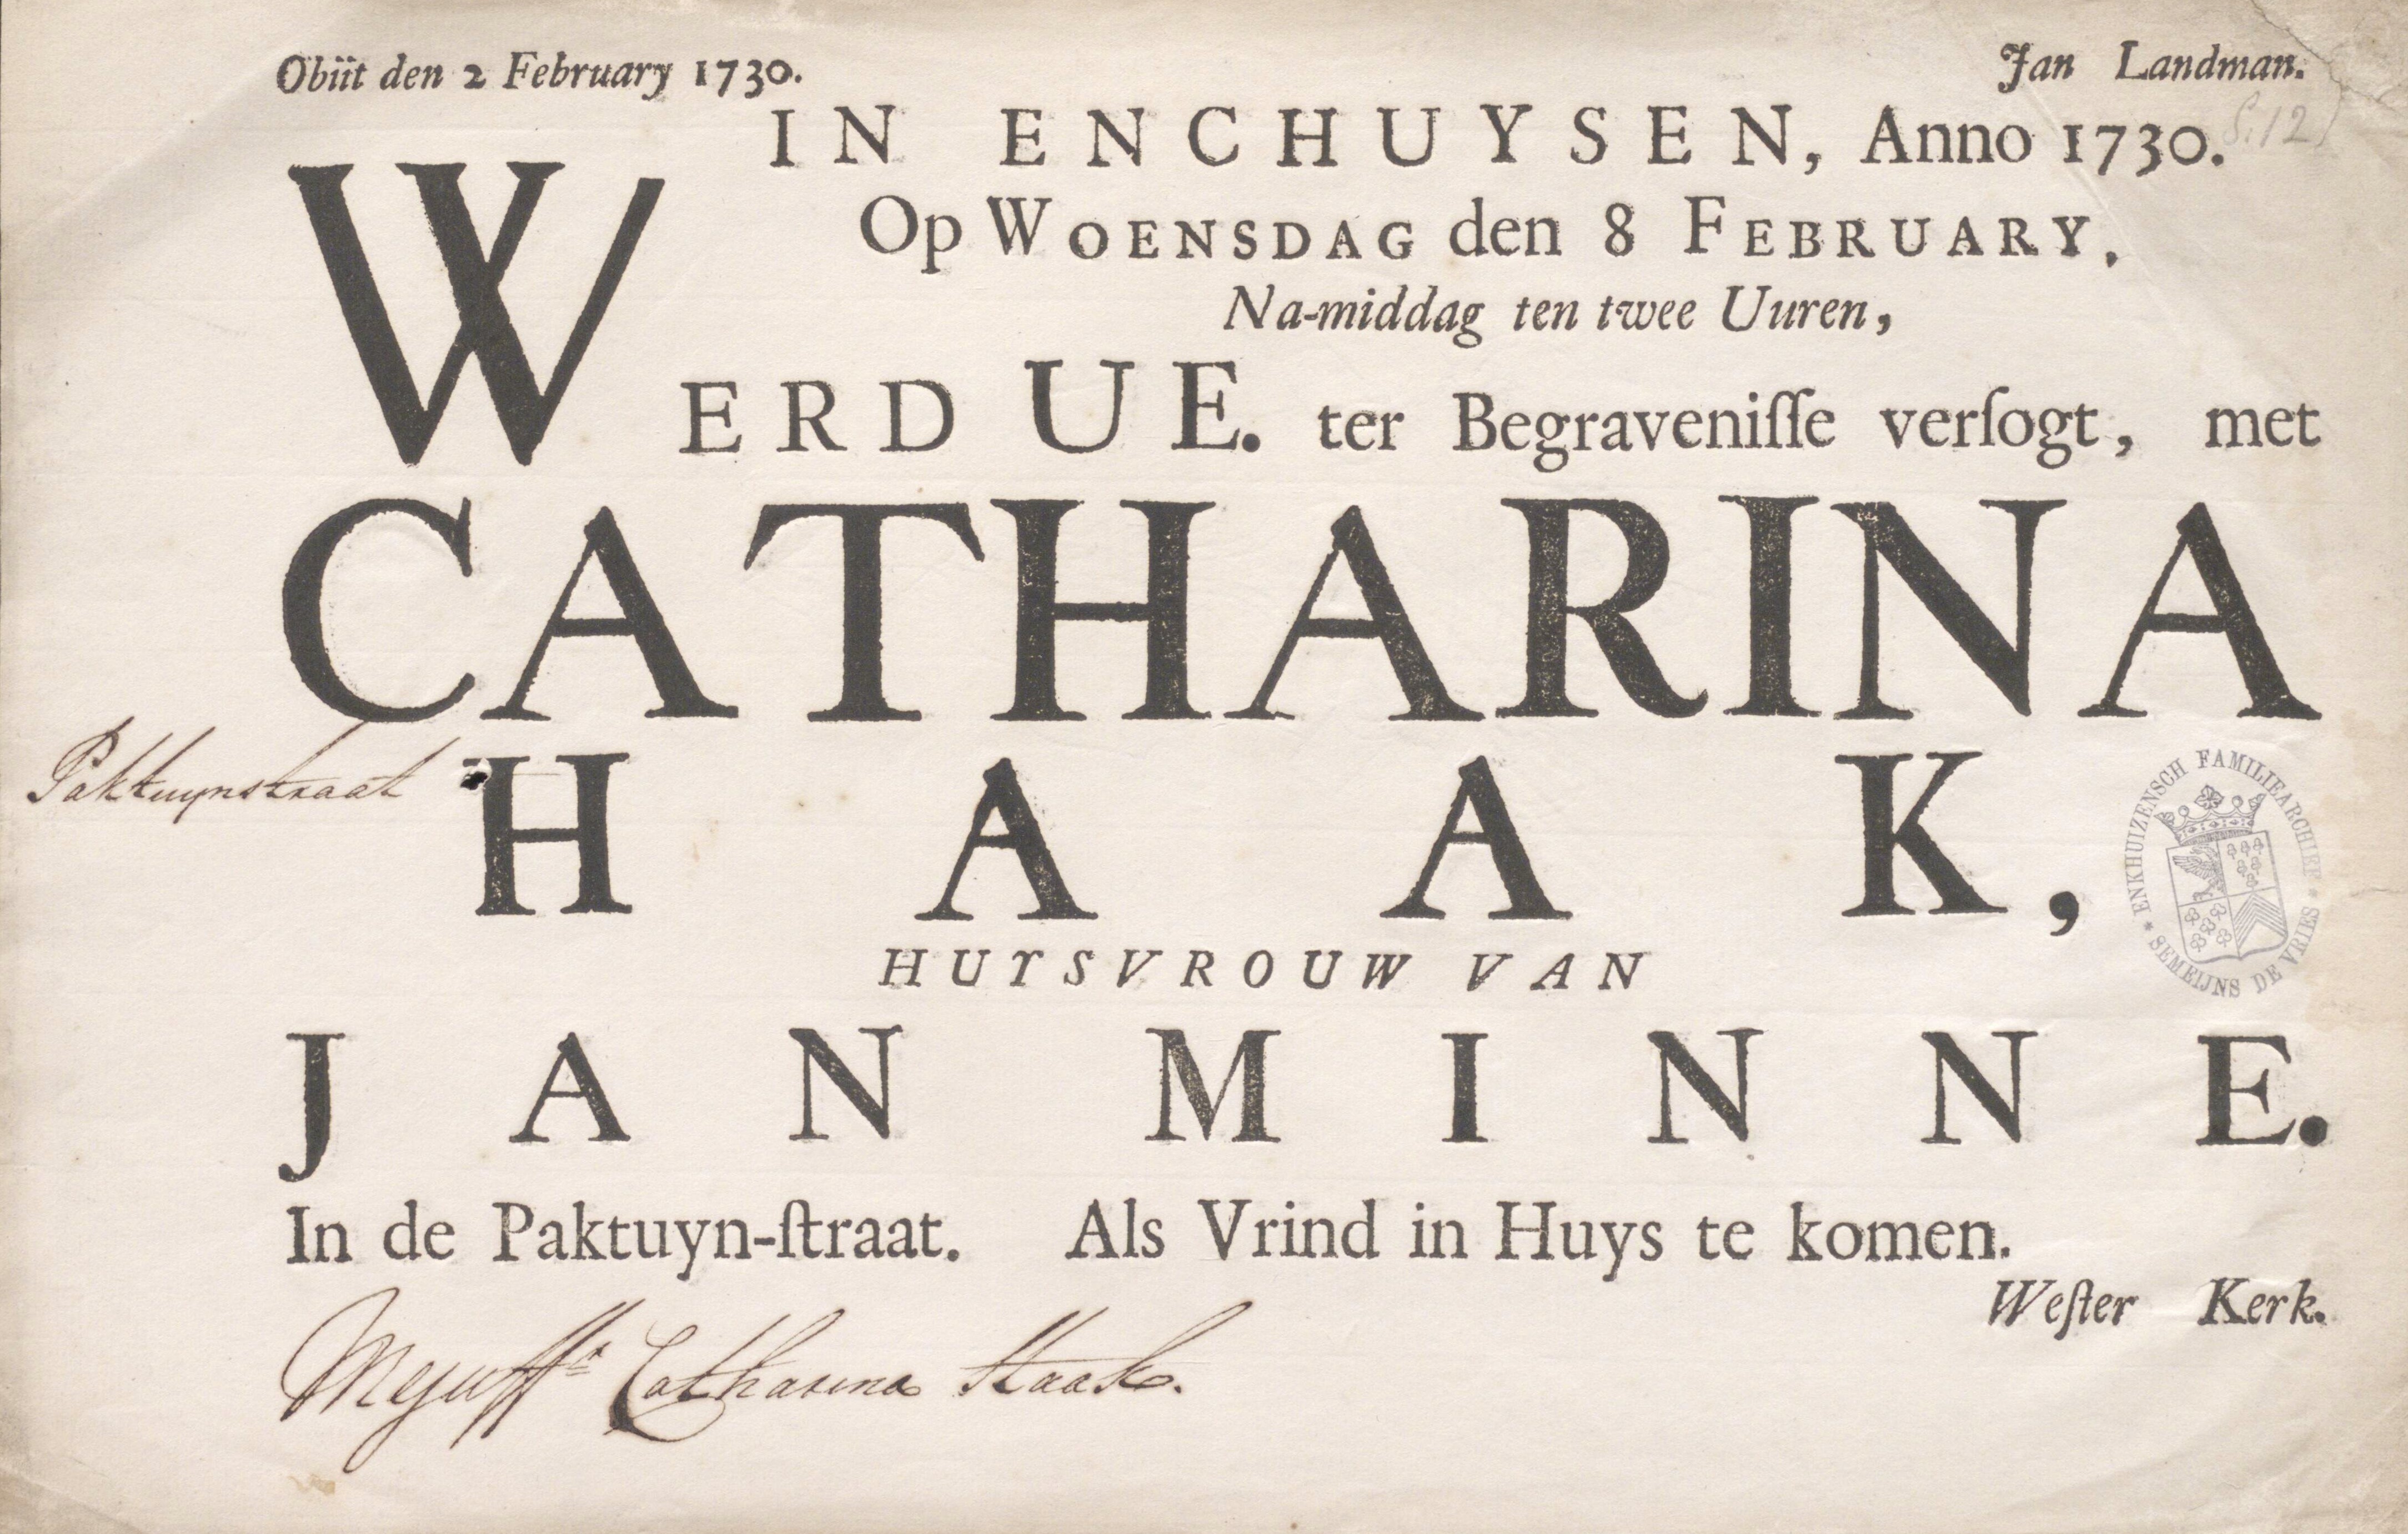 Obiit den 2 February 1730.
Jan Landman.
S.12
IN ENCHUYSEN, Anno 1730.
Op WOENSDAG den 8 FEBRUARY,
Na-middag ten twee Uuren,
WERD UE. ter Begraveniſſe verſogt, met
CATHARINA
Paktuynstraat
HAAK,
HUYSVROUW VAN
JAN MINNE.
In de Paktuyn-ſtraat. Als Vrind in Huys te komen.
Weſter Kerk.
Mejuffr Catharina Haak.
ENKHUIZENSCH FAMILIEARCHIEF * SEMEIJNS DE VRIES *